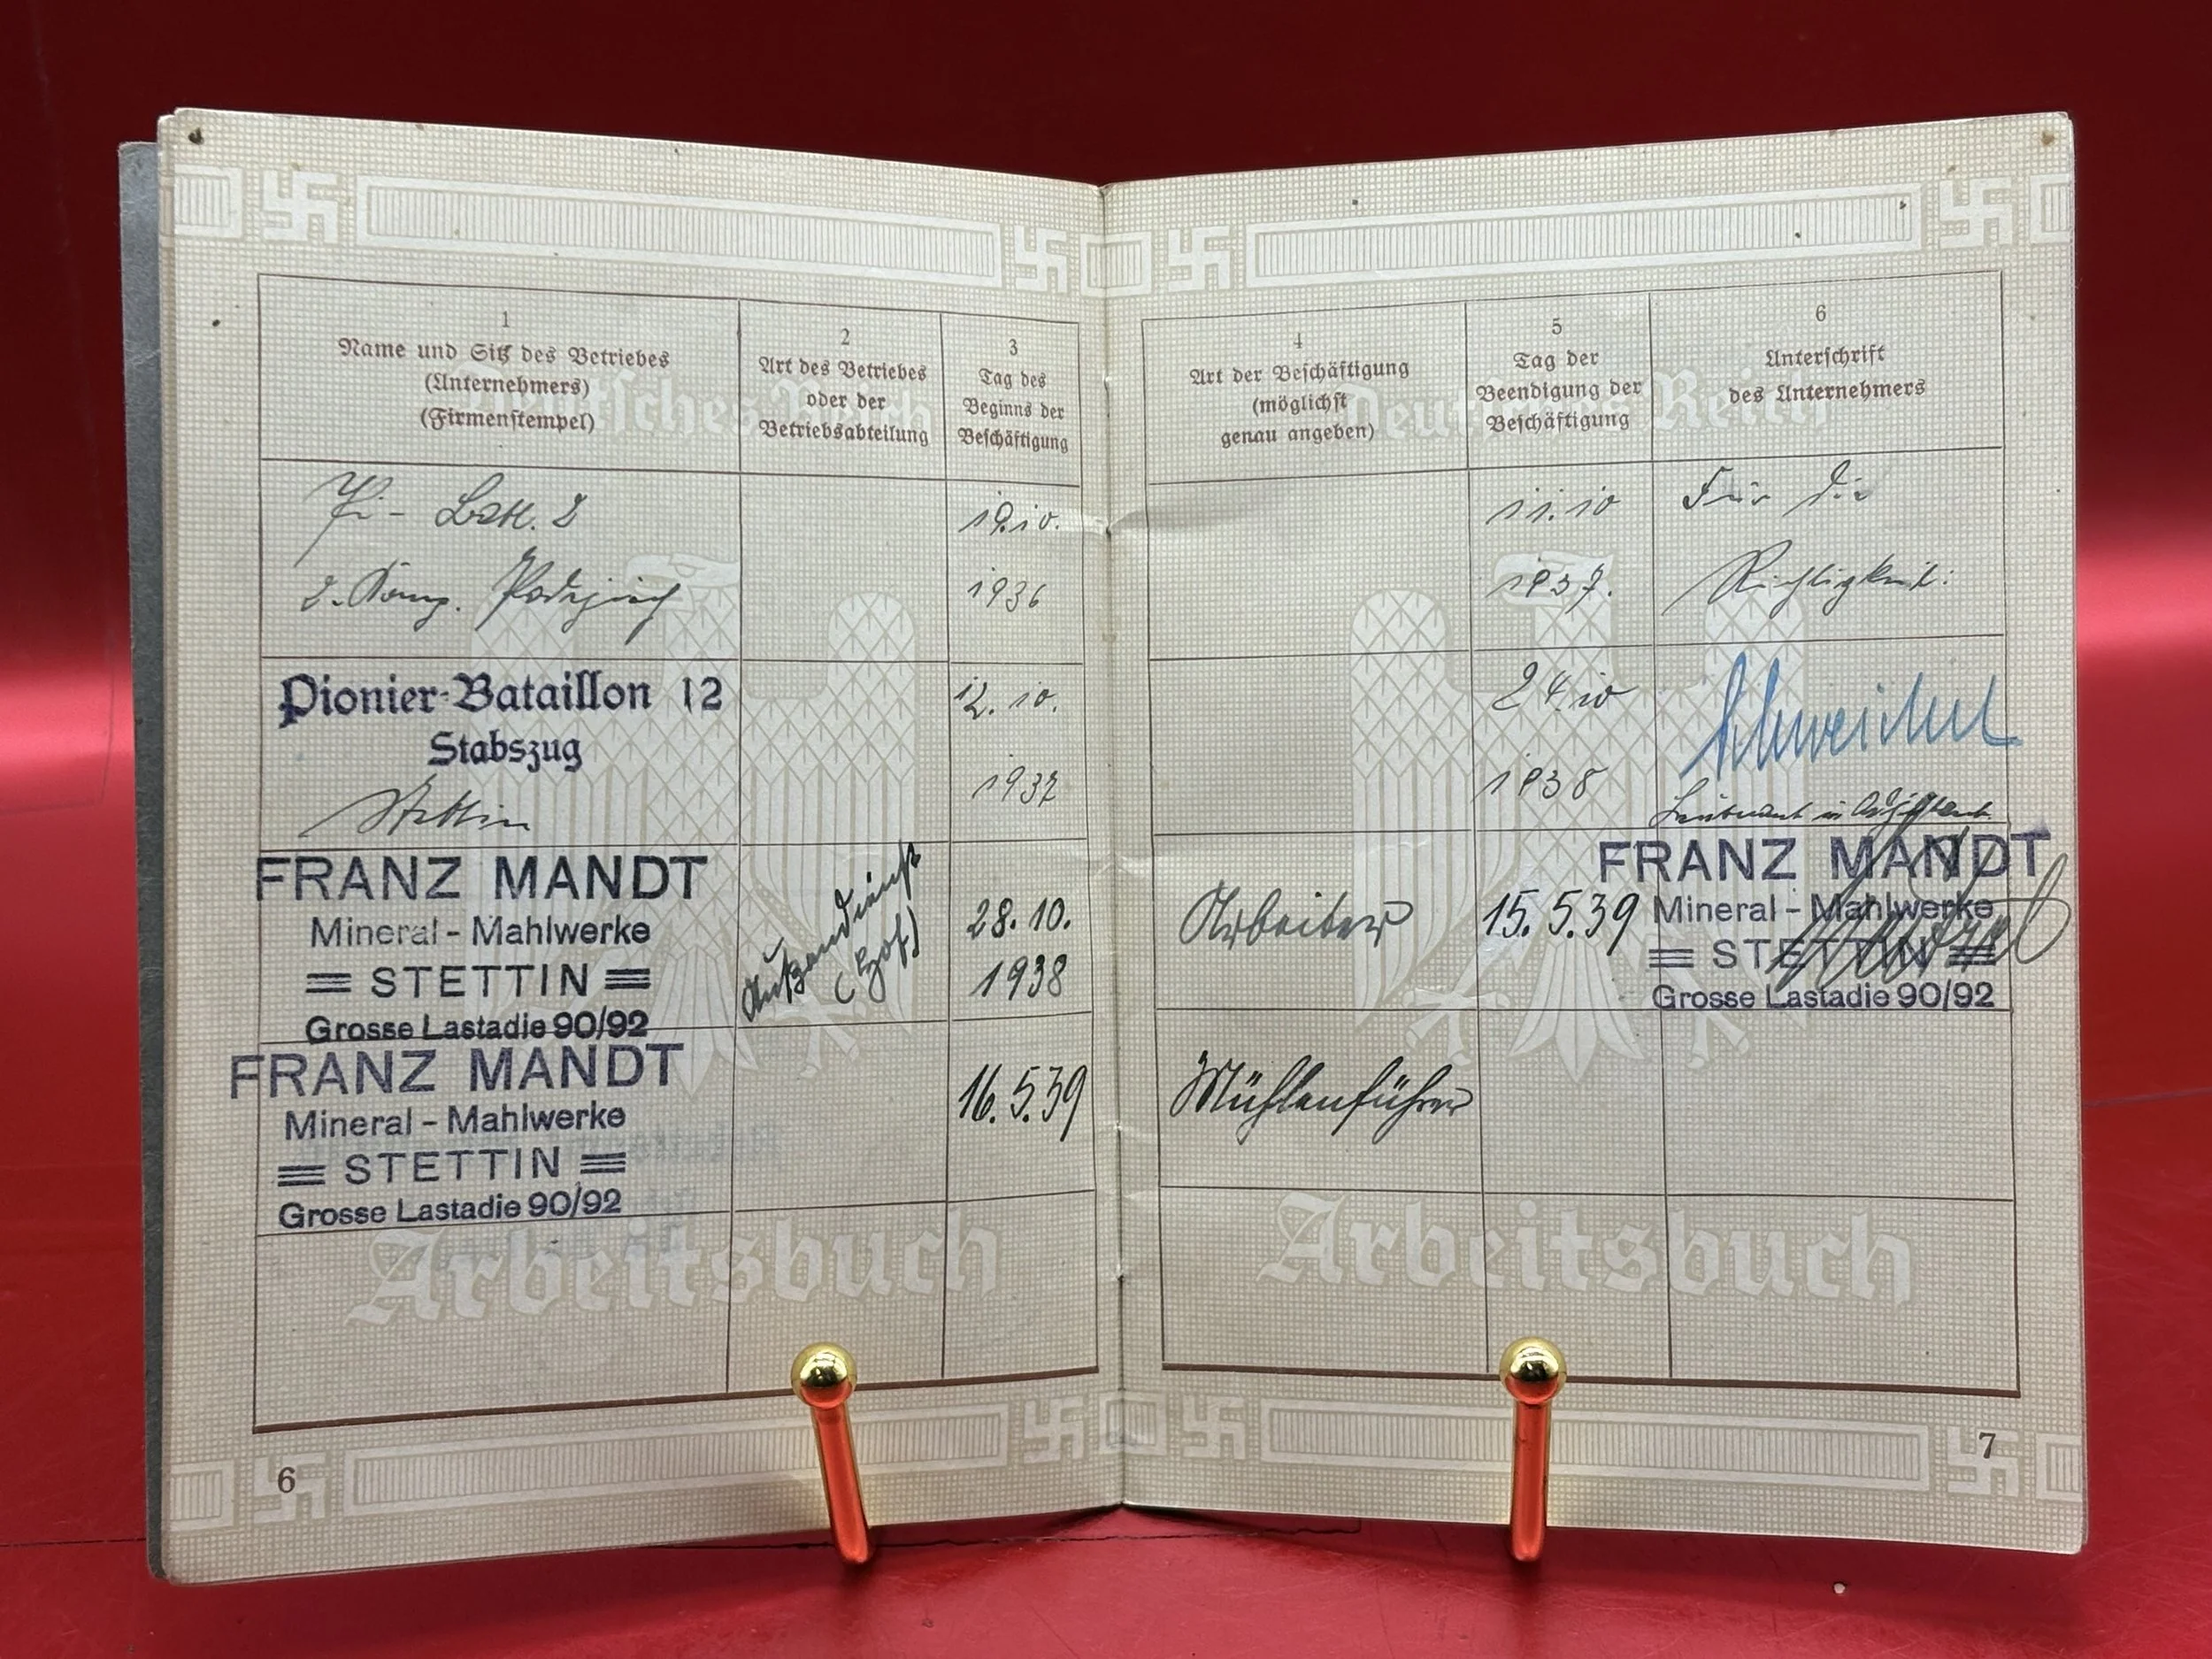 1
Name und Sitz des Betriebes
(Unternehmers)
(Firmenstempel)
2
Art des Betriebes
oder der
Betriebsabteilung
3
Tag des
Beginns der
Beschäftigung
Deutsches Reich
Pi- Batl. 2
2. Komp.
19.10.
1936
Pionier-Bataillon 12
Stabszug
Stettin
12. 10.
1937
FRANZ MANDT
Mineral - Mahlwerke
STETTIN
Grosse Lastadie 90/92
Außendienst
(Hof)
28. 10.
1938
FRANZ MANDT
Mineral - Mahlwerke
STETTIN
Grosse Lastadie 90/92
16. 5. 39
Arbeitsbuch
6
4
Art der Beschäftigung
(möglichst
genau angeben)
5
Tag der
Beendigung der
Beschäftigung
6
Unterschrift
des Unternehmers
Deutsches Reich
11. 10
1937.
Für die
Richtigkeit:
24. 10
1938
Leutnant u. Adjutant.
Arbeiter
15. 5. 39
FRANZ MANDT
Mineral - Mahlwerke
STETTIN
Grosse Lastadie 90/92
Mühlenführer
Arbeitsbuch
7